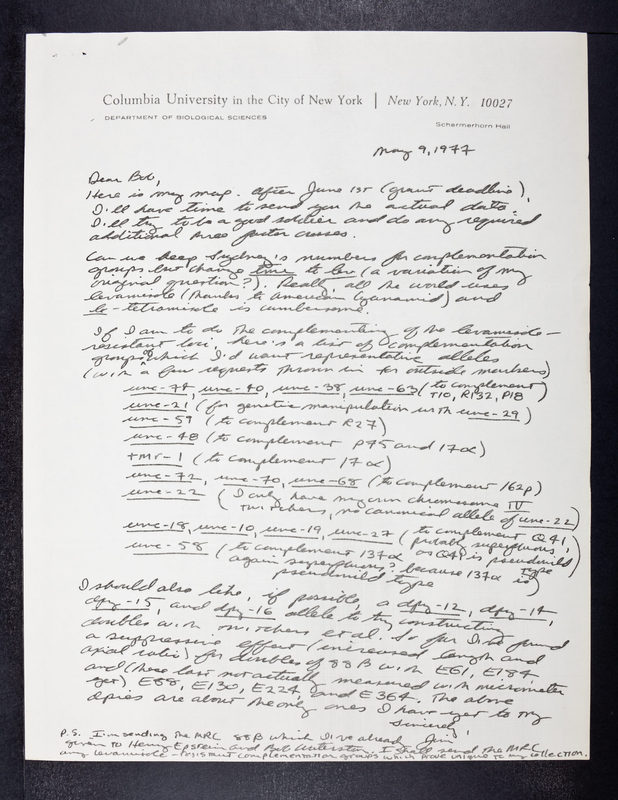 Columbia University in the City of New York | New York, N.Y. 10027
DEPARTMENT OF BIOLOGICAL SCIENCES
Schermerhorn Hall
May 9, 1977
Dear Bob,
Here is my map. After June 1st (grant deadline),
I'll have time to send you the actual data.
I'll try to be a good soldier and do any required
additional three factor crosses.
Can we keep Sydney's numbers for complementation
groups but change tmr to lev (a variation of my
original question?). Really, all the world uses
levamisole (thanks to American Cyanamid) and
le-tetramisole is cumbersome.
If I am to do the complementing of the levamisole-
resistant loci, here's a list of complementation
groups of which I'd want representative alleles
(with a few requests thrown in for outside markers)
unc-74, unc-40, unc-38, unc-63 (to complement
T10, R132, P18)
unc-21 (for genetic manipulation with unc-29)
unc-59 (to complement R27)
unc-48 (to complement P45 and 17α)
tmr-1 (to complement 17α)
unc-72, unc-70, unc-68 (to complement 162p)
unc-22 (I only have my own chromosome IV
twitchers, no canonical allele of unc-22)
unc-18, unc-10, unc-19, unc-27 (to complement Q41,
probably superfluous,
as Q41 is pseudowild
type)
unc-58 (to complement 137α
again superfluous? because 137α is
pseudowild type)
I should also like, if possible a dpy-12, dpy-14,
dpy-15, and dpy-16 allele to try constructing
doubles with twitchers et al. So far I've found
a suppressive effect (increased length and
axial ratio) for doubles of 88B with E61, E184,
and (these last not actually measured with micrometer
yet) E88, E130, E224, and E364. The above
dpies are about the only ones I have yet to try
Sincerely,
Jim
P.S. I'm sending the MRC 88B which I've already
given to Henry Epstein and Bob Waterston. I shall send the MRC
any levamisole-resistant complementation groups which prove unique to my collection.